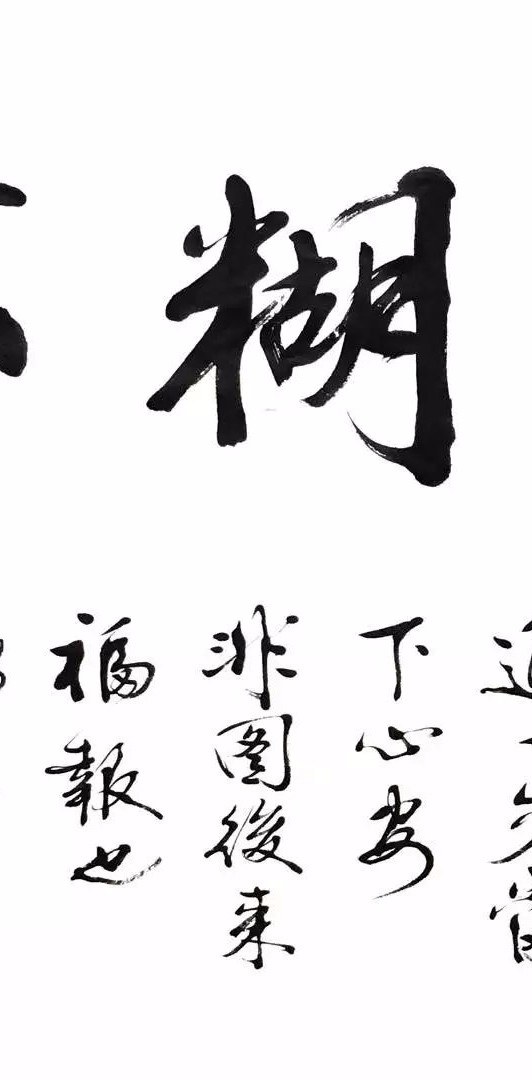 糊
下心安
非图後来
福報也